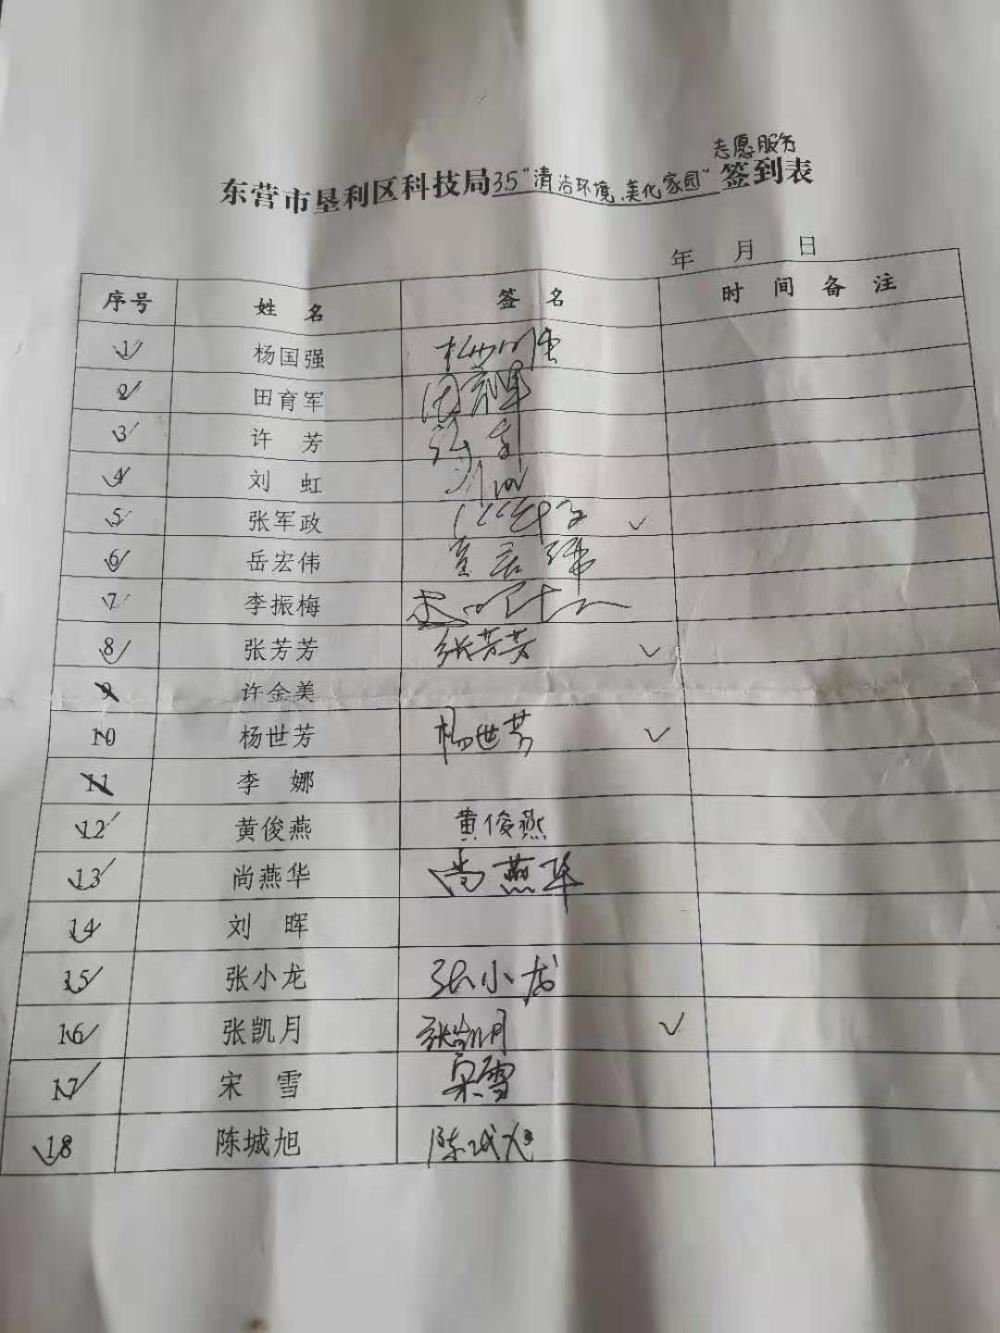 志愿服务
东营市垦利区科技局3.5“清洁环境、美化家园”签到表
年 月 日
序号 姓 名 签 名 时 间 备 注
1 杨国强
2 田育军
3 许 芳 许芳
4 刘 虹 刘虹
5 张军政 ✓
6 岳宏伟
7 李振梅
8 张芳芳 张芳芳 ✓
9 许金美
10 杨世芳 杨世芳 ✓
11 李 娜
12 黄俊燕 黄俊燕
13 尚燕华 尚燕华
14 刘 晖
15 张小龙 张小龙
16 张凯月 张凯月 ✓
17 宋 雪 宋雪
18 陈城旭 陈城旭